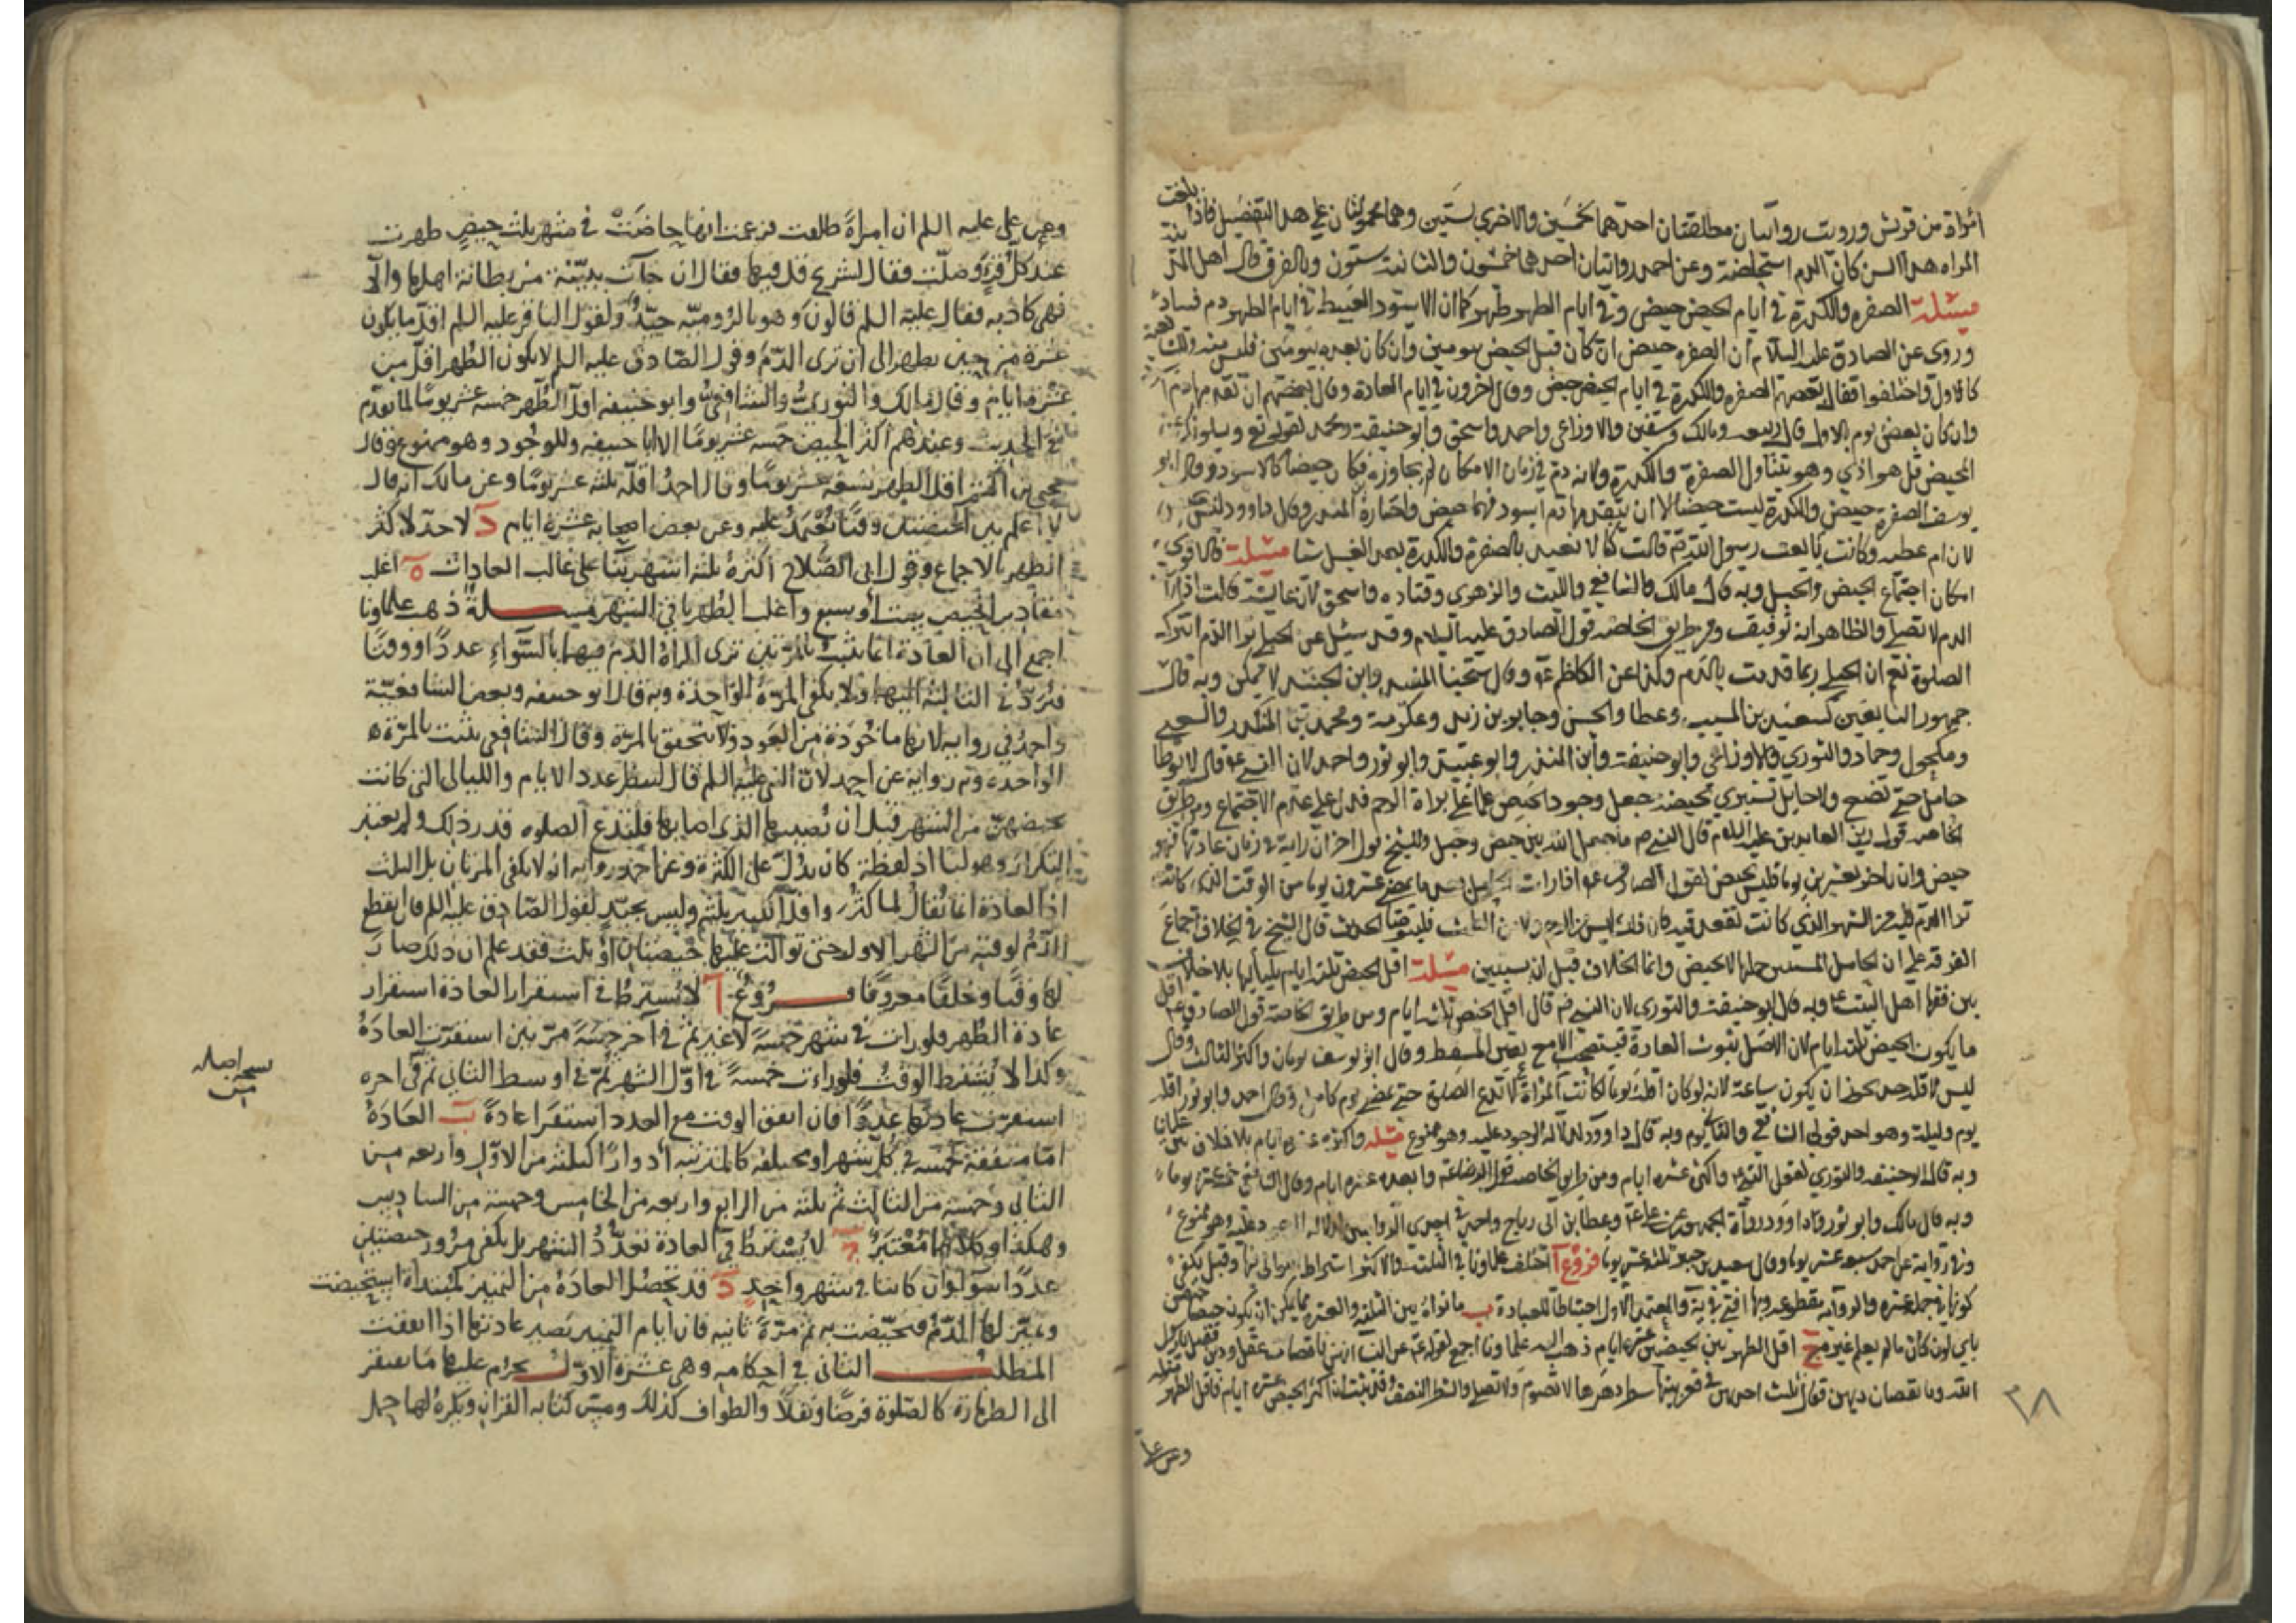 امراة من قريش ورويت روايتان مطلقتان احدهما بخمسين والاخرى بستين وهما محمولتان على هذا التفصيل فاذا بلغت
المراه هذا السن كان الدم استحاضة وعن احمد روايتان احدهما خمسون والثانية ستون وبالفرق قال اهل المدينة
مسئلة الصفره والكدرة في ايام الحيض حيض وفي ايام الطهر طهر كما ان الاسود العبيط في ايام الطهر دم فساد
وروى عن الصادق عليه السلام ان الصفره حيض ان كان قبل الحيض بيومين وان كان بعده بيومين فليس منه وذلك
كالاول واختلفوا فقال بعضهم الصفره والكدرة في ايام الحيض حيض وقال اخرون في ايام العادة وقال بعضهم ان تقدمها دم
وان كان بعض يوم بالاول قال ربيعه ومالك وسفين والاوزاعي واحمد واسحق وابو حنيفة ومحمد لقوله تع ويسئلونك عن
المحيض قل هو اذي وهو يتناول الصفرة والكدرة ولانه دم في زمان الامكان لم يجاوزه فكان حيضا كالاسود وقال ابو
يوسف الصفرة حيض والكدرة ليست حيضا الا ان يتقدمها دم اسود فهما حيض واختاره ابن المنذر وقال داوود ليس
لان ام عطيه وكانت بايعت رسول الله ص قالت كنا لا نعتد بالصفرة والكدرة بعد الغسل شيا مسئلة فالاقوى
امكان اجتماع الحيض والحبل وبه قال مالك والشافعي والليث والزهري وقتاده واسحق لان عايشة قالت اذا رات
الدم لا تصلي والظاهر انه توقيف ومن طريق الخاصه قول الصادق عليه السلام وقد سئل عن الحبلى ترا الدم اتترك
الصلوة نعم ان الحبلى ربما قذفت بالدم وكذا عن الكاظم ع وقال شيخنا المفيد وابن الجنيد لا يمكن وبه قال
جمهور التابعين كسعيد بن المسيب وعطا والحسن وجابر بن زيد وعكرمة ومحمد بن المنكدر والشعبي
ومكحول وحماد والثوري والاوزاعي وابو حنيفة وابن المنذر وابو عبيد وابو ثور واحمد لان النبي ع قال لا توطا
حامل حتى تضع ولا حايل تستبري بحيضة جعل وجود الحيض علما على براة الرحم فدل على عدم الاجتماع ومن طريق
الخاصه قول زين العابدين عليه السلام قال النبي ص ما جمع الله بين حيض وحبل وللشيخ قول اخر ان راته في زمان عادتها فهو
حيض وان تاخر بعشرين يوما فليس بحيض لقول الصادق ع اذا رات الحامل بعد ما يمضي عشرون يوما من الوقت الذي كانت
ترا الدم فيه من الشهر الذي كانت تقعد فيه فان ذلك ليس من الرحم ولا من الطمث فليتوضا الحديث قال الشيخ في الخلاف اجماع
الفرقه على ان الحامل المستبين حملها لا تحيض وانما الخلاف قبل ان يستبين مسئلة اقل الحيض ثلثه ايام بلياليها بلا خلاف
بين فقها اهل البيت ع وبه قال ابو حنيفة والثوري لان النبي ص قال اقل الحيض ثلثه ايام ومن طريق الخاصة قول الصادق ع اقل
ما يكون الحيض ثلثه ايام لان الاصل ثبوت العبادة فيستصحب الا مع يقين المسقط وقال ابو يوسف يومان واكثر الثالث وقال
ليس لاقله حد يجوز ان يكون ساعة لانه لو كان اقله يوما لكانت المراة لا تدع الصلوة حتى يمضي يوم كامل وقال احمد وابو ثور اقله
يوم وليلة وهو احد قولي الشافعي والثاني يوم وبه قال داوود لدلالة الوجود عليه وهو ممنوع مسئله واكثره عشره ايام بلا خلاف بين علمائنا
وبه قال ابو حنيفه والثوري لقول النبي ع واكثره عشره ايام ومن طريق الخاصه قول الرضا ع وابعده عشره ايام وقال الشافعي خمسة عشر يوما
وبه قال مالك وابو ثور وداوود وعطا بن ابي رباح واحمد في احدى الروايتين وهو ممنوع
وفي رواية عن احمد سبعه عشر يوما وقال سعيد بن جبير ثلثه عشر يوما فروع ا اختلف علماونا في الثلثة فالاكثر اشترط تواليها وقيل يكفي
كونها في جمله عشره والمعتمد الاول احتياطا للعبادة ب ما تراه بين الثلثه والعشره مما يمكن ان يكون حيضا حيض
باي لون كان ما لم يعلم غيره ج اقل الطهر بين الحيضتين عشره ايام ذهب اليه علماونا اجمع لقوله ع عن النسا انهن ناقصات عقل ودين فقيل يا رسول
الله وما نقصان دينهن فقال تلبث احديهن في قعر بيتها شطر دهرها لا تصوم ولا تصلي والشطر النصف وقد ثبت ان اكثر الحيض عشره ايام فاقل الطهر
٣٨
وعن علي
وعن علي عليه السلم ان امراة طلقت فزعمت انها حاضت في شهر ثلث حيض طهرت
عند كل قرء وصلت فقال لشريح قل فيها فقال ان جآت ببينة من بطانة اهلها والا
فهي كاذبه فقال عليه السلم قالون وهو بالروميه جيد ولقول الباقر عليه السلم اقل ما يكون
عشرة من حين تطهر الى ان ترى الدم وقول الصادق عليه السلم لا يكون الطهر اقل من
عشرة ايام وقال مالك والثوري والشافعي وابو حنيفه اقل الطهر خمسه عشر يوما لما تقدم
في الحديث وعندهم اكثر الحيض خمسه عشر يوما الا ابا حنيفه وللوجود وهو ممنوع وقال
يحيى بن اكثم اقل الطهر تسعه عشر يوما وقال احمد اقله ثلثه عشر يوما وعن مالك انه قال
لا اعلم بين الحيضتين وقتا يعتمد عليه وعن بعض اصحابه عشرة ايام د لا حد لاكثر
الطهر بالاجماع وقول ابي الصلاح اكثره ثلثه اشهر بنا على غالب العادات ه اغلب
مقادير الحيض ست او سبع واغلب الطهر باقي الشهر مسلة ذهب علماونا
اجمع الى ان العادة انما تثبت بالمرتين ترى المراة الدم فيهما بالسوآء عددا ووقتا
فترد في الثالثة اليها ولا يكفي المرة الواحدة وبه قال ابو حنيفه وبعض الشافعية
واحمد في روايه لانها ماخوذة من العود ولا يتحقق بالمرة وقال الشافعي تثبت بالمرة
الواحده وبه روايه عن احمد لان النبي عليه السلم قال لتنظر عدد الايام والليالي التي كانت
تحيضهن من الشهر قبل ان يصيبها الذي اصابها فلتدع الصلوه قدر ذلك ولم يعتبر
التكرار وهو لنا اذ لفظة كان يدل على الكثرة وعن احمد روايه انه لا يكفي المرتان بل الثلث
اذ العادة انما تقال لما كثر واقله ثلثه وليس بجيد لقول الصادق عليه السلم فان انقطع
الدم لوقته من الشهر الاول حتى توالت عليها حيضتان او ثلث فقد علم ان ذلك صار
لها وقتا وخلقا معروفا فروع ا لا يشترط في استقرار العادة استقرار
عادة الطهر فلو رات في شهر خمسة لا غير ثم في آخر خمسة مرتين استقرت العادة
وكذا لا يشترط الوقت فلو رات خمسة في اول الشهر ثم في اوسط الثاني ثم في اخره
استقرت عادتها عددا فان اتفق الوقت مع العدد استقرا عادة ب العادة
اما متفقة كخمسه في كل شهر او مختلفه كالمترتبه ادوارا كثلثة من الاول واربعه من
الثاني وخمسة من الثالث ثم ثلثة من الرابع واربعه من الخامس وخمسة من السادس
وهكذا وكلاهما معتبر ج لا يشترط في العادة تعدد الشهر بل يكفي مرور حيضتين
عددا سوآ ولو ان كانتا في شهر واحد د قد تحصل العادة من التمييز كمبتداة استحيضت
وتميز لها الدم فتحيضت به ثم مرة ثانيه فان ايام التمييز تصير عادتها اذا اتفقت
المطلب الثاني في احكامه وهي عشرة الاول يحرم عليها ما يفتقر
الى الطهارة كالصلوة فرضا ونفلا والطواف كذلك ومس كتابه القران ويكره لها حمل